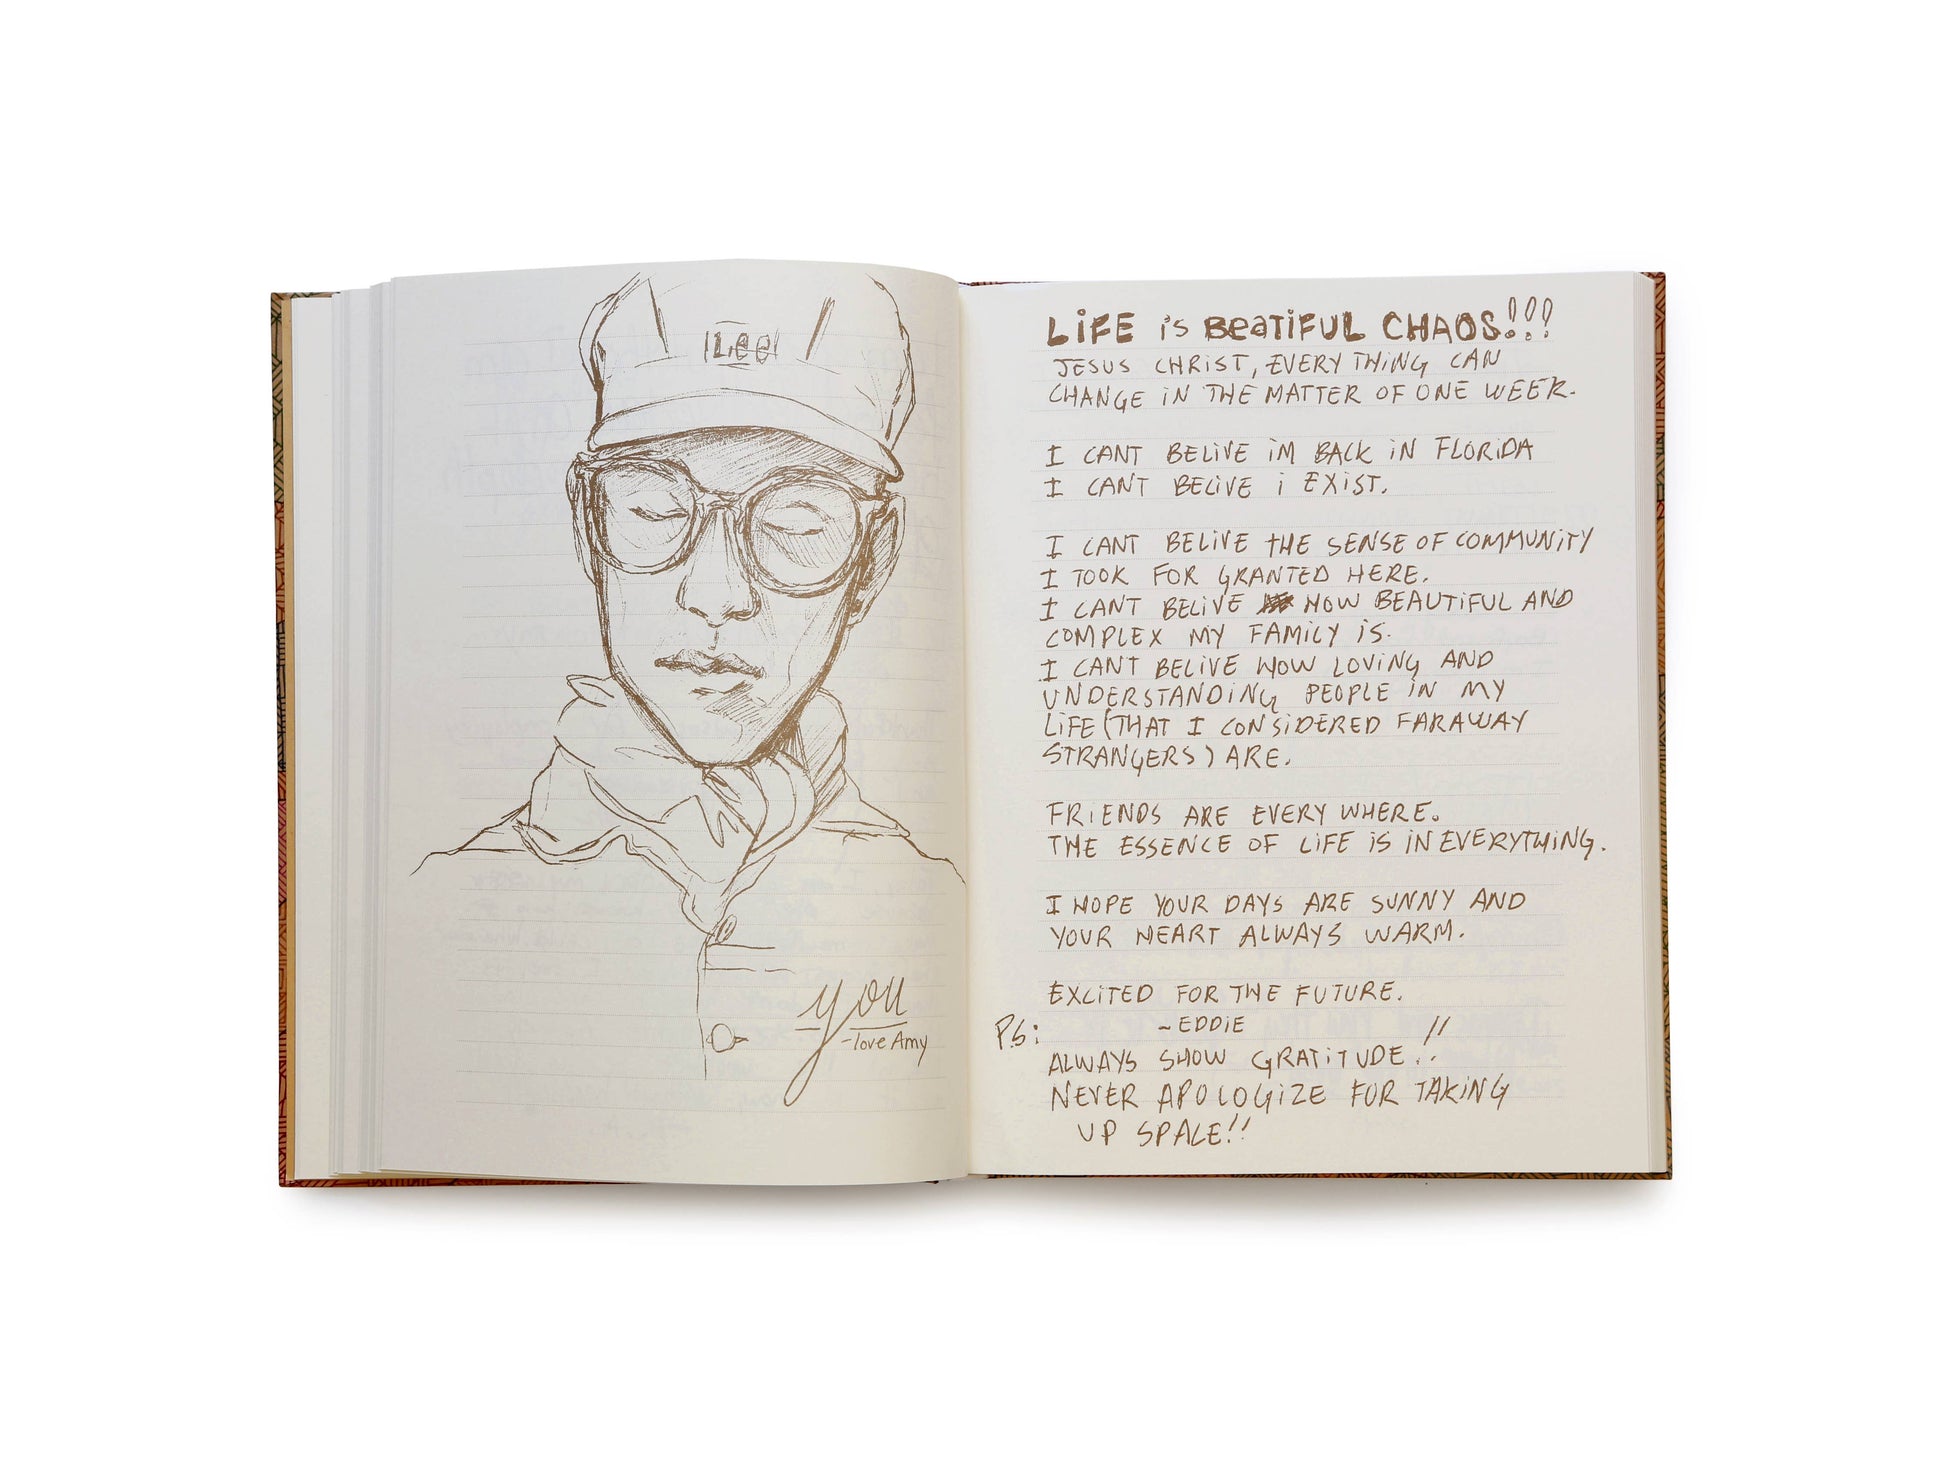 Lee
you
-love Amy
LiFE is BeaTiFUL CHAOS!!!
JESUS CHRIST, EVERY THiNG CAN
CHANGE iN THE MATTER OF ONE WEEK.
I CANT BELIVE iM BACK iN FLORiDA
I CAN'T BELIVE i EXiST.
I CANT BELIVE tHE SENSE OF COMMUNITY
I TOOK FOR GRANTED HERE.
I CANT BELIVE HOW BEAUTiFUL AND
COMPLEX MY FAMILY iS.
I CANT BELIVE HOW LOViNG AND
UNDERSTANDiNG PEOPLE iN MY
LiFE (THAT I CONSiDERED FARAWAY
STRANGERS) ARE.
FRiENDS ARE EVERY WHERE.
THE ESSENCE OF LiFE iS iN EVERYTHiNG.
I HOPE YOUR DAYS ARE SUNNY AND
YOUR HEART ALWAYS WARM.
EXCiTED FOR THE FUTURE.
~EDDiE
P.S:
ALWAYS SHOW GRATiTUDE!!
NEVER APOLOGiZE FOR TAKiNG
UP SPACE!!